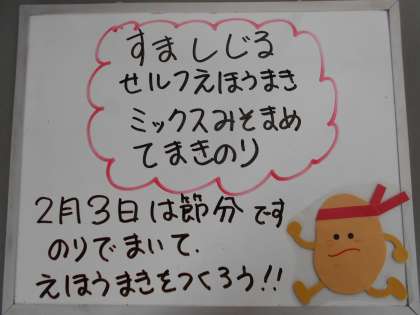 すましじる
セルフえほうまき
ミックスみそまめ
てまきのり
2月3日は節分です
のりでまいて、
えほうまきをつくろう!!